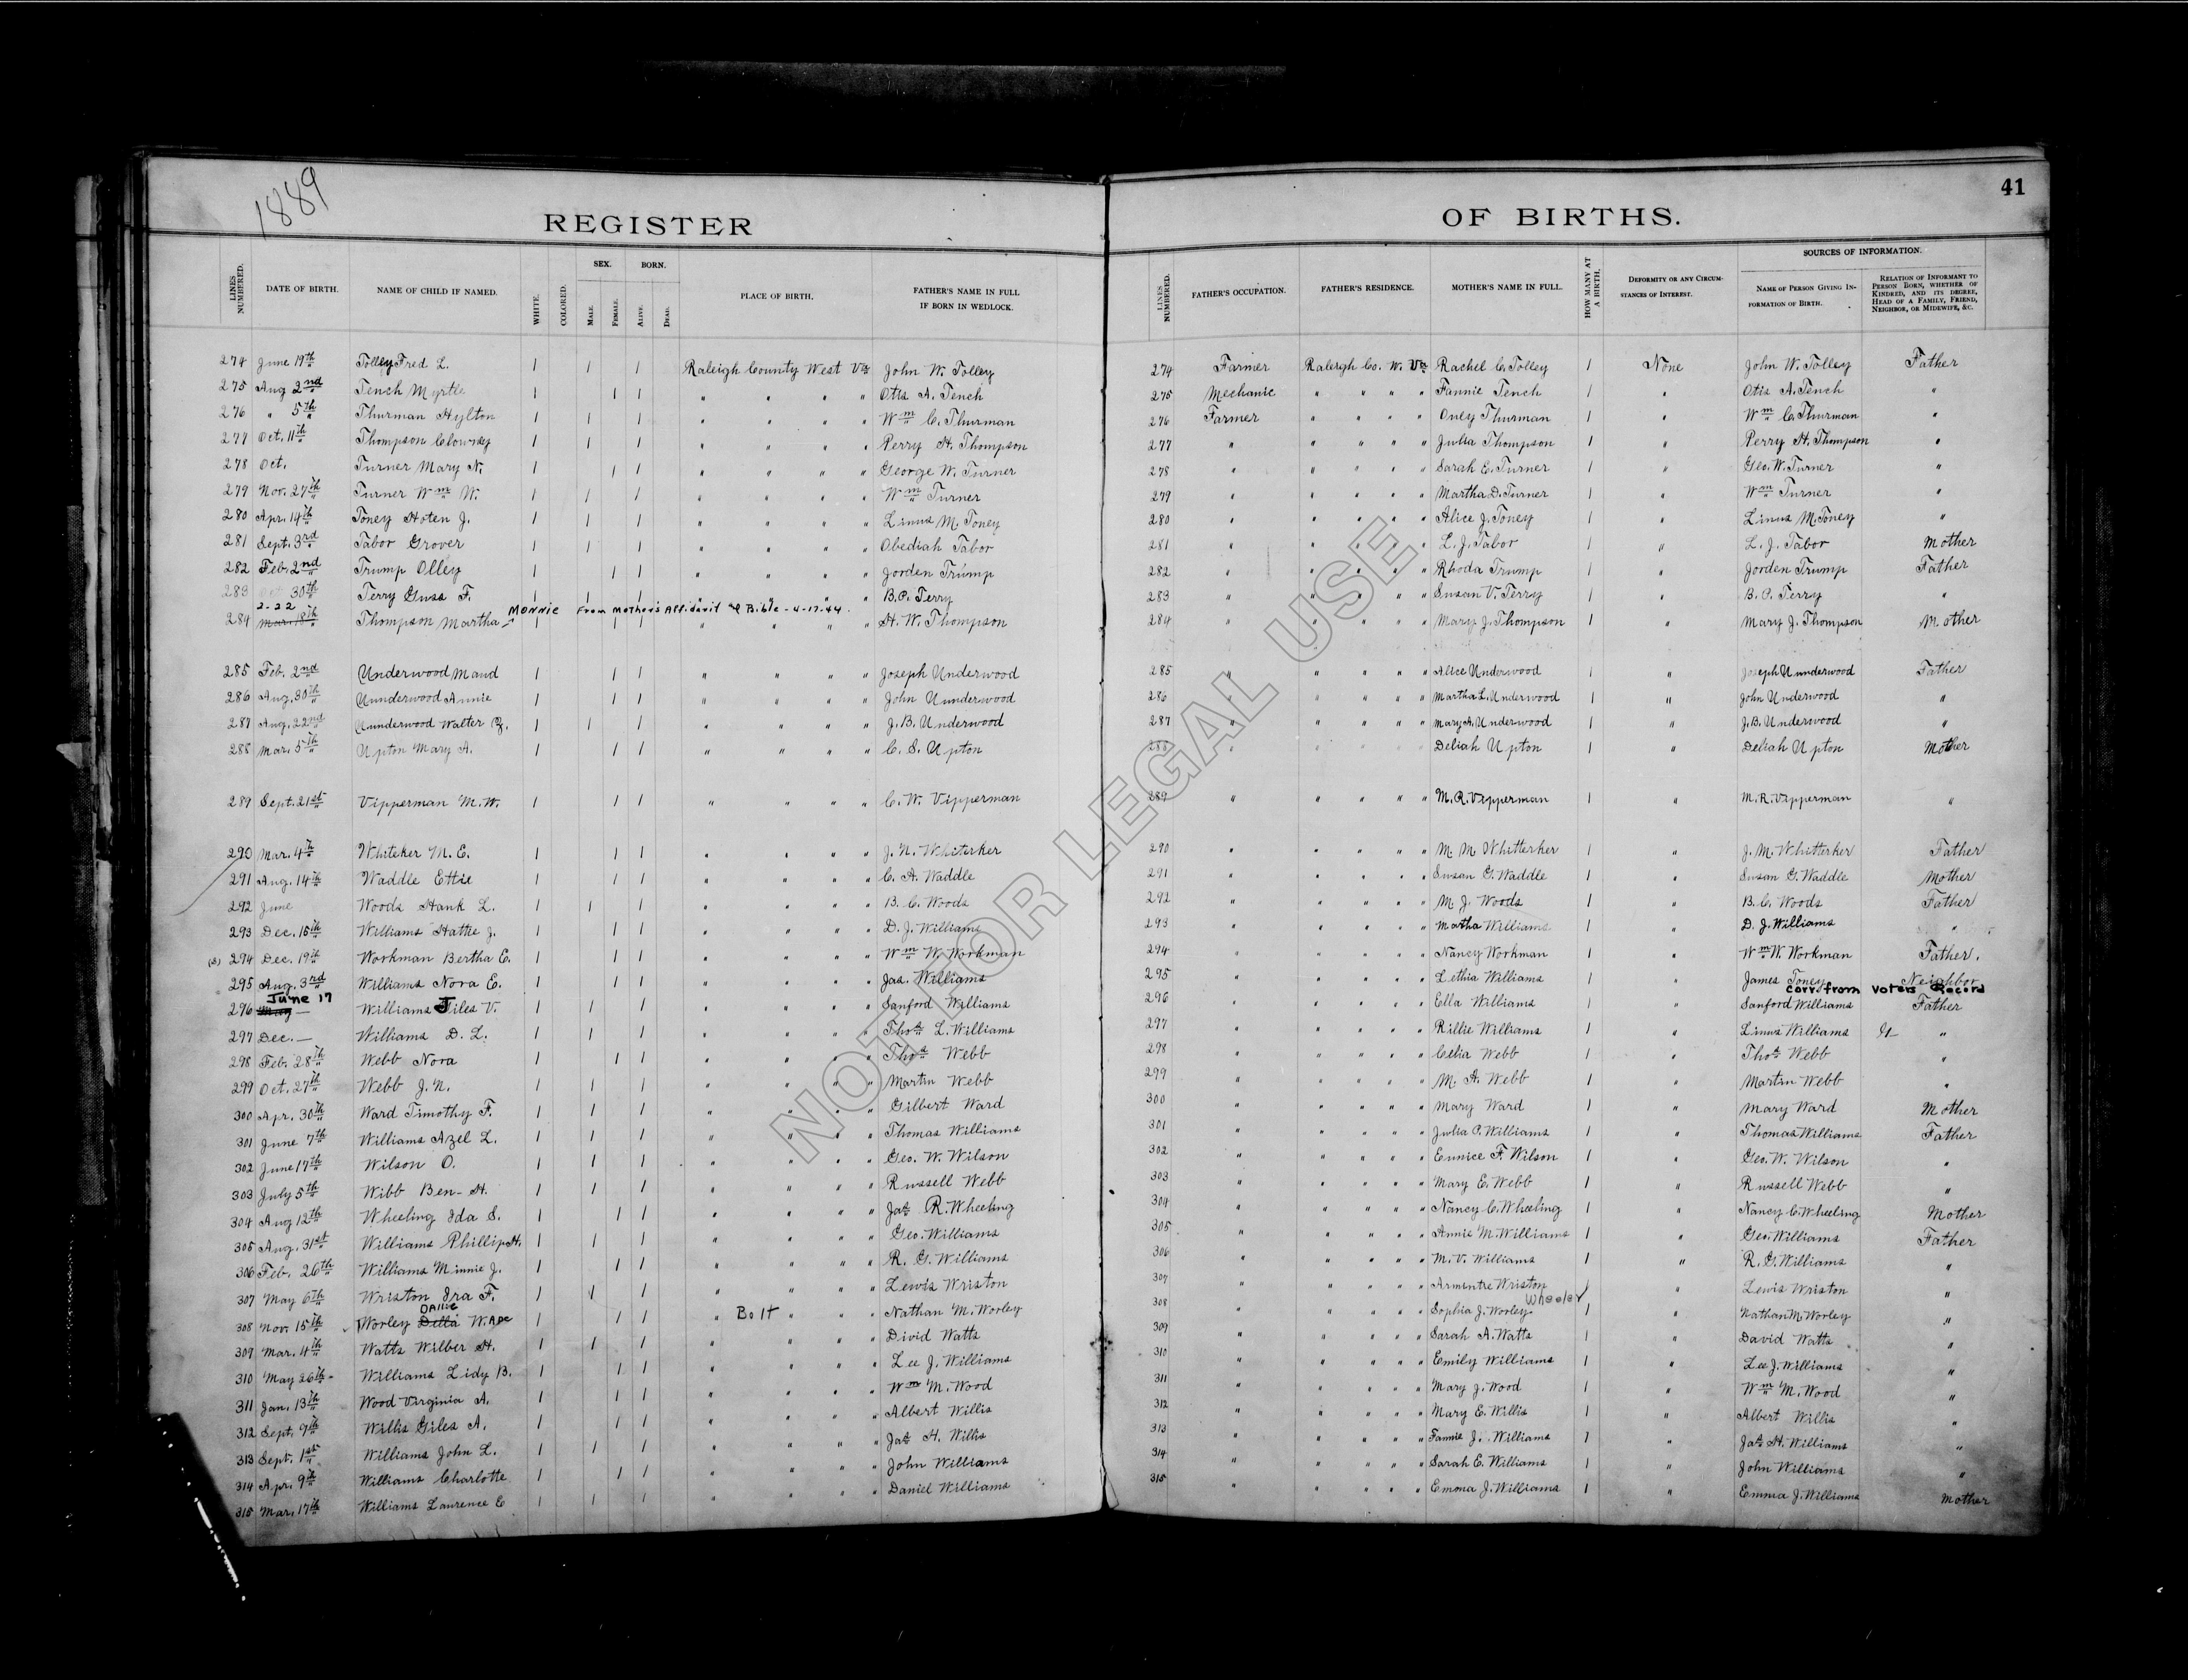 1889
REGISTER OF BIRTHS.
41
LINES NUMBERED. DATE OF BIRTH. NAME OF CHILD IF NAMED. WHITE. COLORED. SEX. MALE. FEMALE. BORN. ALIVE. DEAD. PLACE OF BIRTH. FATHER'S NAME IN FULL IF BORN IN WEDLOCK.
LINES NUMBERED. FATHER'S OCCUPATION. FATHER'S RESIDENCE. MOTHER'S NAME IN FULL. HOW MANY AT A BIRTH. DEFORMITY OR ANY CIRCUMSTANCES OF INTEREST. SOURCES OF INFORMATION. NAME OF PERSON GIVING INFORMATION OF BIRTH. RELATION OF INFORMANT TO PERSON BORN, WHETHER OF KINDRED, AND ITS DEGREE, HEAD OF A FAMILY, FRIEND, NEIGHBOR, OR MIDWIFE, &C.
274 June 19th Tolley Fred L. 1 1 1 Raleigh County West Va John W. Tolley 274 Farmer Raleigh Co. W. Va. Rachel C. Tolley 1 None John W. Tolley Father
275 Aug 2nd Tench Myrtle 1 1 1 " " " " Otis A. Tench 275 Mechanic " " " " Fannie Tench 1 " Otis A. Tench "
276 " 5th Thurman Hylton 1 1 1 " " " " Wm C. Thurman 276 Farmer " " " " Oney Thurman 1 " Wm C. Thurman "
277 Oct. 11th Thompson Clowney 1 1 1 " " " " Perry H. Thompson 277 " " " " " Julia Thompson 1 " Perry H. Thompson "
278 Oct. Turner Mary N. 1 1 1 " " " " George W. Turner 278 " " " " " Sarah E. Turner 1 " Geo. W. Turner "
279 Nov. 27th Turner Wm W. 1 1 1 " " " " Wm Turner 279 " " " " " Martha D. Turner 1 " Wm Turner "
280 Apr. 14th Toney Hoten J. 1 1 1 " " " " Linus M. Toney 280 " " " " " Alice J. Toney 1 " Linus M. Toney "
281 Sept. 3rd Tabor Grover 1 1 1 " " " " Obediah Tabor 281 " " " " " L. J. Tabor 1 " L. J. Tabor Mother
282 Feb. 2nd Trump Olley 1 1 1 " " " " Jorden Trump 282 " " " " " Rhoda Trump 1 " Jorden Trump Father
283 Oct 30th Terry Guss F. 1 1 1 " " " " B. P. Terry 283 " " " " " Susan V. Terry 1 " B. P. Terry "
2-22 MONNIE From Mother's Affidavit & Bible - 4-17-44.
284 Mar. 18th Thompson Martha 1 1 1 " " " " H. W. Thompson 284 " " " " " Mary J. Thompson 1 " Mary J. Thompson Mother
285 Feb. 2nd Underwood Maud 1 1 1 " " " " Joseph Underwood 285 " " " " " Alice Underwood 1 " Joseph Uunderwood Father
286 Aug. 30th Uunderwood Annie 1 1 1 " " " " John Uunderwood 286 " " " " " Martha L. Underwood 1 " John Underwood "
287 Aug. 22nd Uunderwood Walter 1 1 1 " " " " J. B. Underwood 287 " " " " " Mary A. Underwood 1 " J. B. Underwood "
288 Mar. 5th Upton Mary A. 1 1 1 " " " " C. S. Upton 288 " " " " " Deliah Upton 1 " Deliah Upton Mother
289 Sept. 21st Vipperman M. W. 1 1 1 " " " " C. W. Vipperman 289 " " " " " M. R. Vipperman 1 " M. R. Vipperman "
290 Mar. 4th Whiteker M. E. 1 1 1 " " " " J. N. Whiterker 290 " " " " " M. M. Whitterker 1 " J. M. Whitterker Father
291 Aug. 14th Waddle Ettie 1 1 1 " " " " C. A. Waddle 291 " " " " " Susan G. Waddle 1 " Susan G. Waddle Mother
292 June Woods Hank L. 1 1 1 " " " " B. C. Woods 292 " " " " " M. J. Woods 1 " B. C. Woods Father
293 Dec. 15th Williams Hattie J. 1 1 1 " " " " D. J. Williams 293 " " " " " Martha Williams 1 " D. J. Williams "
(S) 294 Dec. 19th Workman Bertha E. 1 1 1 " " " " Wm W. Workman 294 " " " " " Nancy Workman 1 " Wm W. Workman Father.
295 Aug. 3rd Williams Nora E. 1 1 1 " " " " Jas. Williams 295 " " " " " Lethia Williams 1 " James Toney Neighbor
June 17 corr. from Voters Record
296 May — Williams Tiles V. 1 1 1 " " " " Sanford Williams 296 " " " " " Ella Williams 1 " Sanford Williams Father
297 Dec. — Williams D. L. 1 1 1 " " " " Thos. L. Williams 297 " " " " " Rillie Williams 1 " Linus Williams "
298 Feb. 28th Webb Nora 1 1 1 " " " " Thos Webb 298 " " " " " Celia Webb 1 " Thos Webb "
299 Oct. 27th Webb J. N. 1 1 1 " " " " Martin Webb 299 " " " " " M. A. Webb 1 " Martin Webb "
300 Apr. 30th Ward Timothy F. 1 1 1 " " " " Gilbert Ward 300 " " " " " Mary Ward 1 " Mary Ward Mother
301 June 7th Williams Azel L. 1 1 1 " " " " Thomas Williams 301 " " " " " Julia P. Williams 1 " Thomas Williams Father
302 June 17th Wilson O. 1 1 1 " " " " Geo. W. Wilson 302 " " " " " Eunice F. Wilson 1 " Geo. W. Wilson "
303 July 5th Wibb Ben- H. 1 1 1 " " " " Russell Webb 303 " " " " " Mary E. Webb 1 " Russell Webb "
304 Aug 12th Wheeling Ida S. 1 1 1 " " " " Jas R. Wheeling 304 " " " " " Nancy C. Wheeling 1 " Nancy C. Wheeling Mother
305 Aug. 31st Williams Phillip H. 1 1 1 " " " " Geo. Williams 305 " " " " " Annie M. Williams 1 " Geo. Williams Father
306 Feb. 26th Williams Minnie J. 1 1 1 " " " " R. G. Williams 306 " " " " " M. V. Williams 1 " R. G. Williams "
307 May 6th Wriston Ira F. 1 1 1 " " " " Lewis Wriston 307 " " " " " Armintre Wriston 1 " Lewis Wriston "
Dallie Wheeler
308 Nov. 15th Worley Della Wade 1 1 1 " Bolt " " " Nathan M. Worley 308 " " " " " Sophia J. Worley 1 " Nathan M. Worley "
309 Mar. 4th Watts Wilber H. 1 1 1 " " " " Divid Watts 309 " " " " " Sarah A. Watts 1 " David Watts "
310 May 26th Williams Lidy B. 1 1 1 " " " " Lee J. Williams 310 " " " " " Emily Williams 1 " Lee J. Williams "
311 Jan. 13th Wood Virginia A. 1 1 1 " " " " Wm M. Wood 311 " " " " " Mary J. Wood 1 " Wm M. Wood "
312 Sept. 9th Willis Giles A. 1 1 1 " " " " Albert Willis 312 " " " " " Mary E. Willis 1 " Albert Willis "
313 Sept. 1st Williams John L. 1 1 1 " " " " Jas H. Willis 313 " " " " " Fannie J. Williams 1 " Jas H. Williams "
314 Apr. 9th Williams Charlotte 1 1 1 " " " " John Williams 314 " " " " " Sarah E. Williams 1 " John Williams "
315 Mar. 17th Williams Laurence E 1 1 1 " " " " Daniel Williams 315 " " " " " Emma J. Williams 1 " Emma J. Williams Mother
NOT FOR LEGAL USE